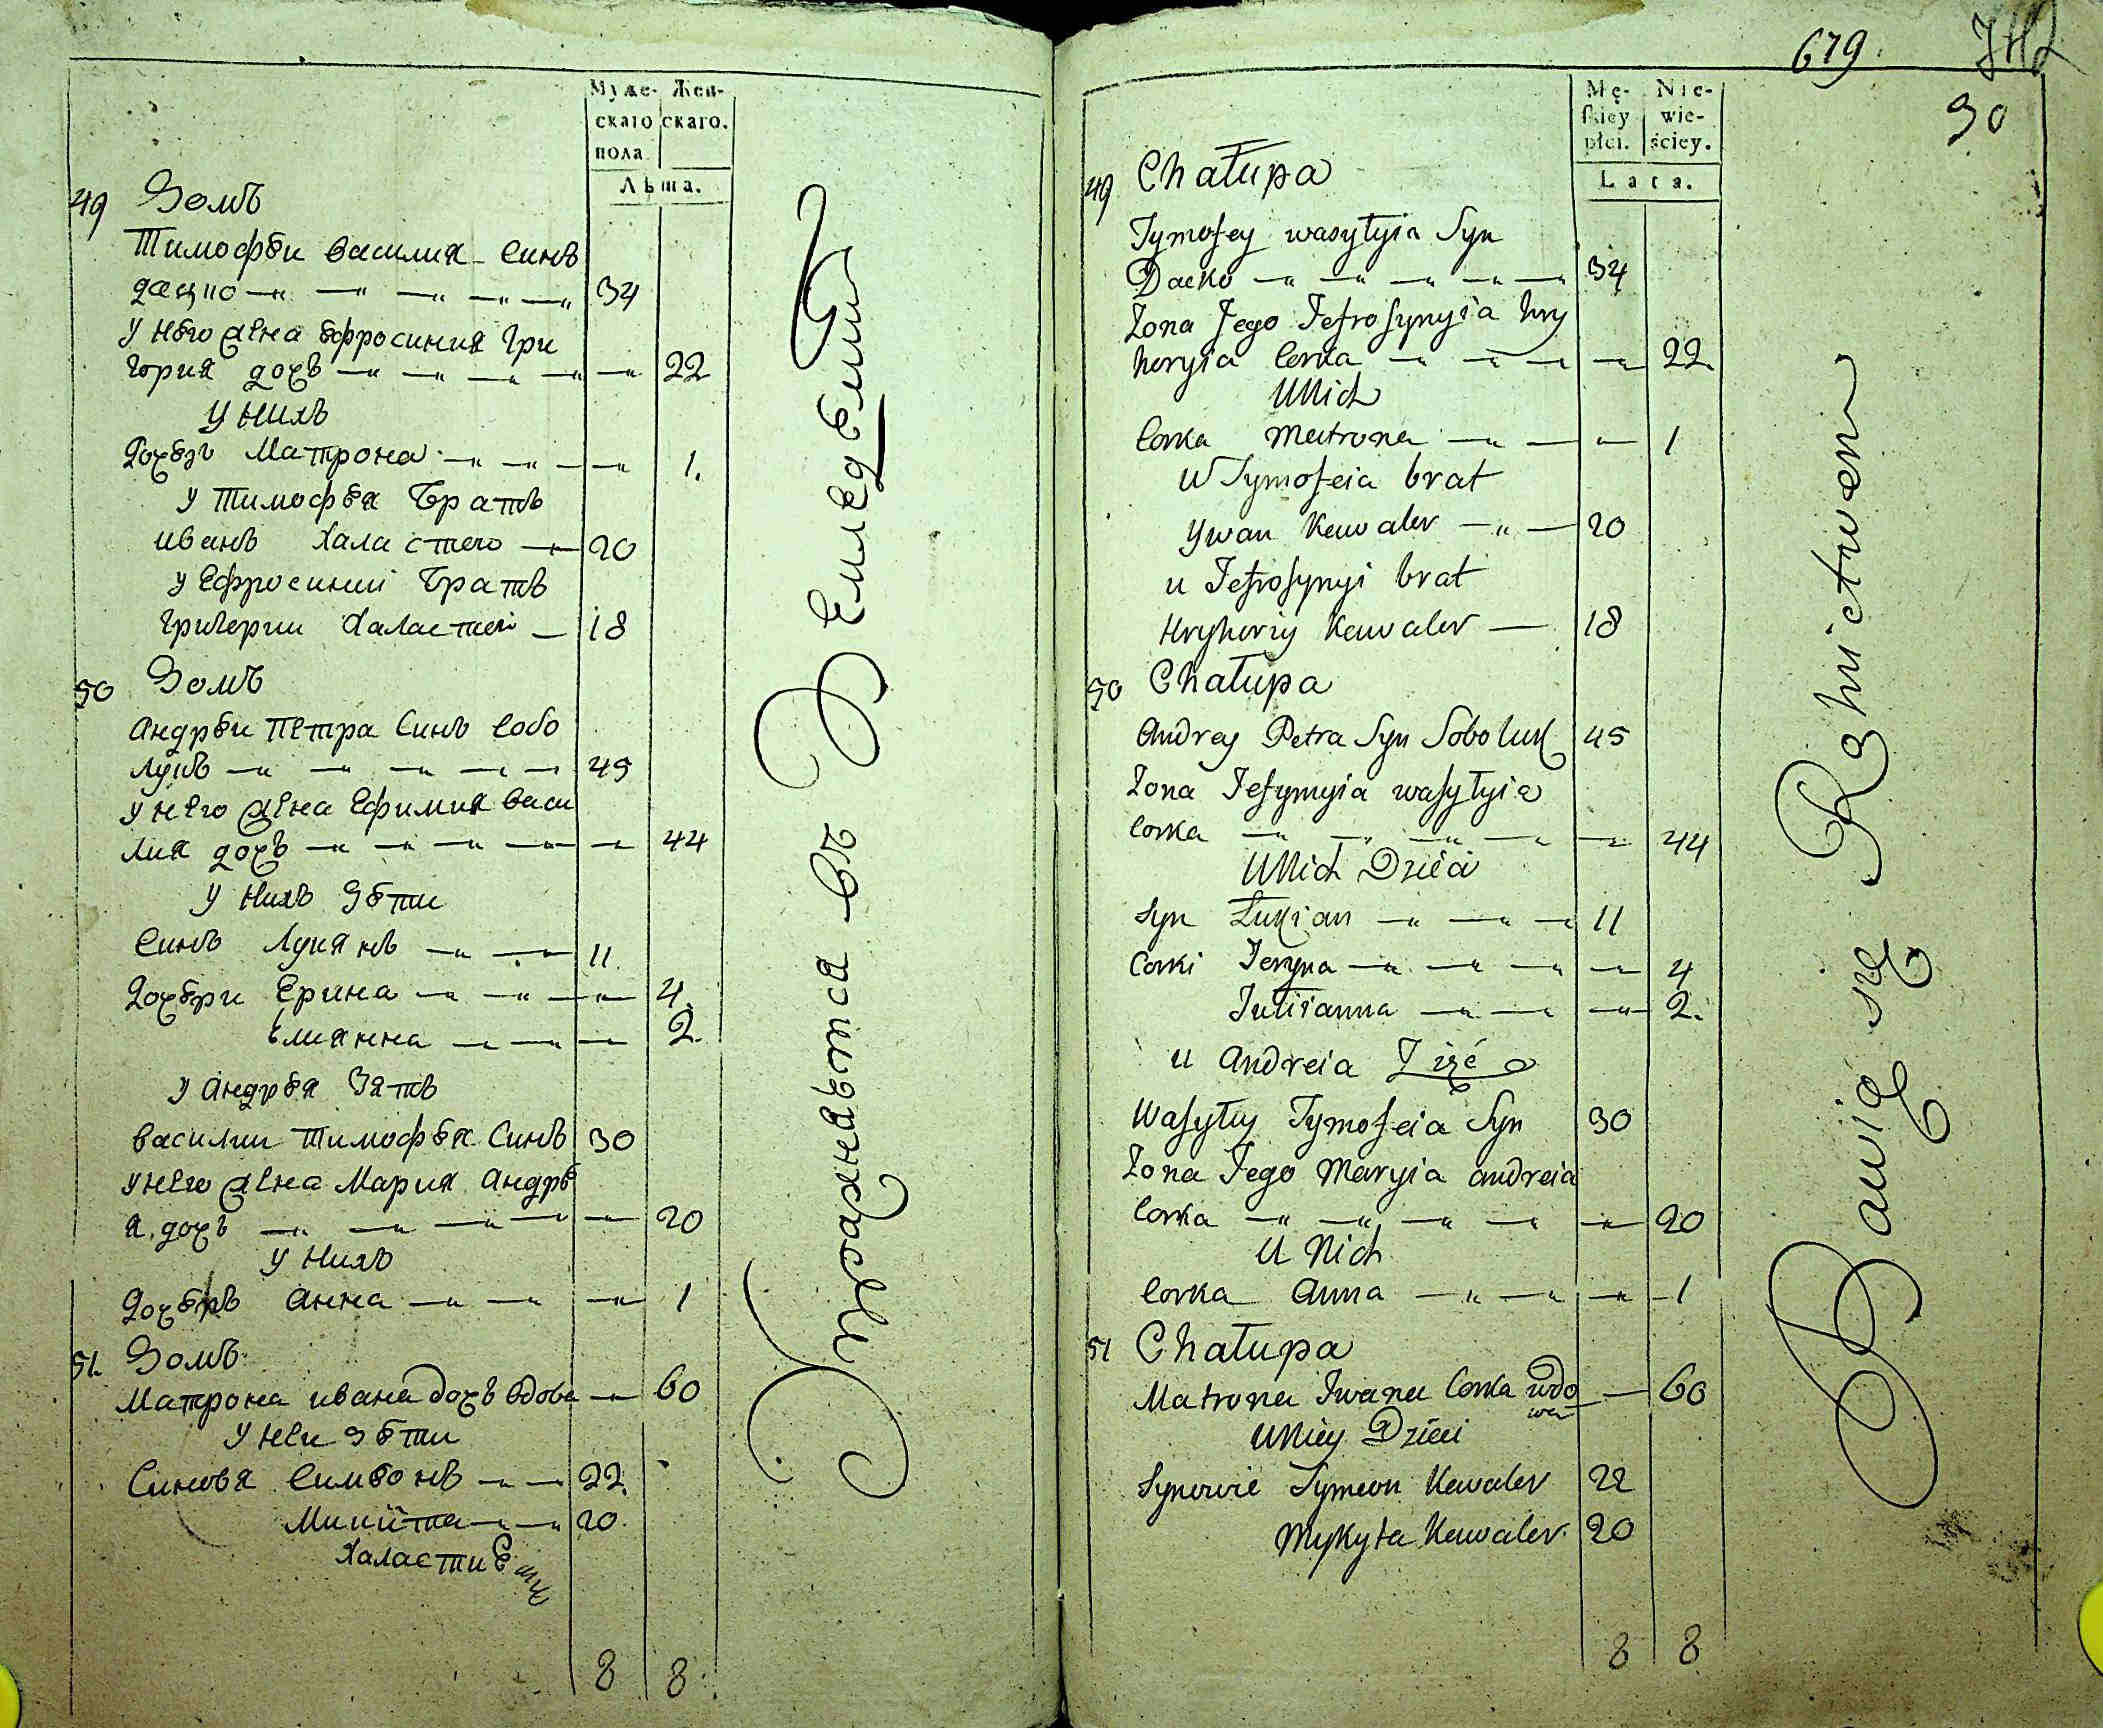 Муже- Жен-
скаго скаго.
пола
Лѣта.
49 Домъ
Тимофѣи василия синъ
дацко 34
у нѣго жена ѣфросиния гри
гория дочъ 22
у нихъ
дочѣрь Матрона 1.
у Тимофѣя братъ
иванъ халастои 20
у Ефросинии братъ
григерии халастои 18
50 Домъ
андрѣи Петра синъ собо
лукъ 45
у него жена Ефимия васи
лия дочъ 44
у нихъ дѣти
синъ Лукянъ 11
дочѣри Ерина 4.
ѣлиянна 2.
у андрѣя зять
василии тимофѣя синъ 30
у него жена Мария андрѣ
я дочъ 20
у нихъ
дочѣръ анна 1
51. Домъ
Матрона ивана дочъ вдова 60
у неи дѣти
синовя симѣонъ 22.
Микита 20
халастие
8 8
679
90
Mę- Nie-
skiey wie-
płci. ściey.
Lata.
49 Chałupa
Tymofey wasyłyia Syn
Dacko 34
Żona Jego Jefrosynyia hry
horyia Corka 22.
U Nich
Corka Matrona 1
u Tymofeia brat
Ywan Kawaler 20
u Jefrosynyi brat
Hryhoriy Kawaler 18
50 Chałupa
Andrey Petra Syn Soboluk 45
Żona Jefymyia wasyłyia
Corka 44
U Nich Dzieci
Syn Łukian 11
Corki Jeryna 4
Julianna 2.
u Andreia Zięć
Wasyłiy Tymofeia Syn 30
Żona Jego Maryia andreia
Corka 20
U Nich
Corka Anna 1
51 Chałupa
Matrona Iwana Corka wdo
wa 60
U Niey Dzieci
Synowie Symeon Kawaler 22
Mykyta Kawaler 20
8 8